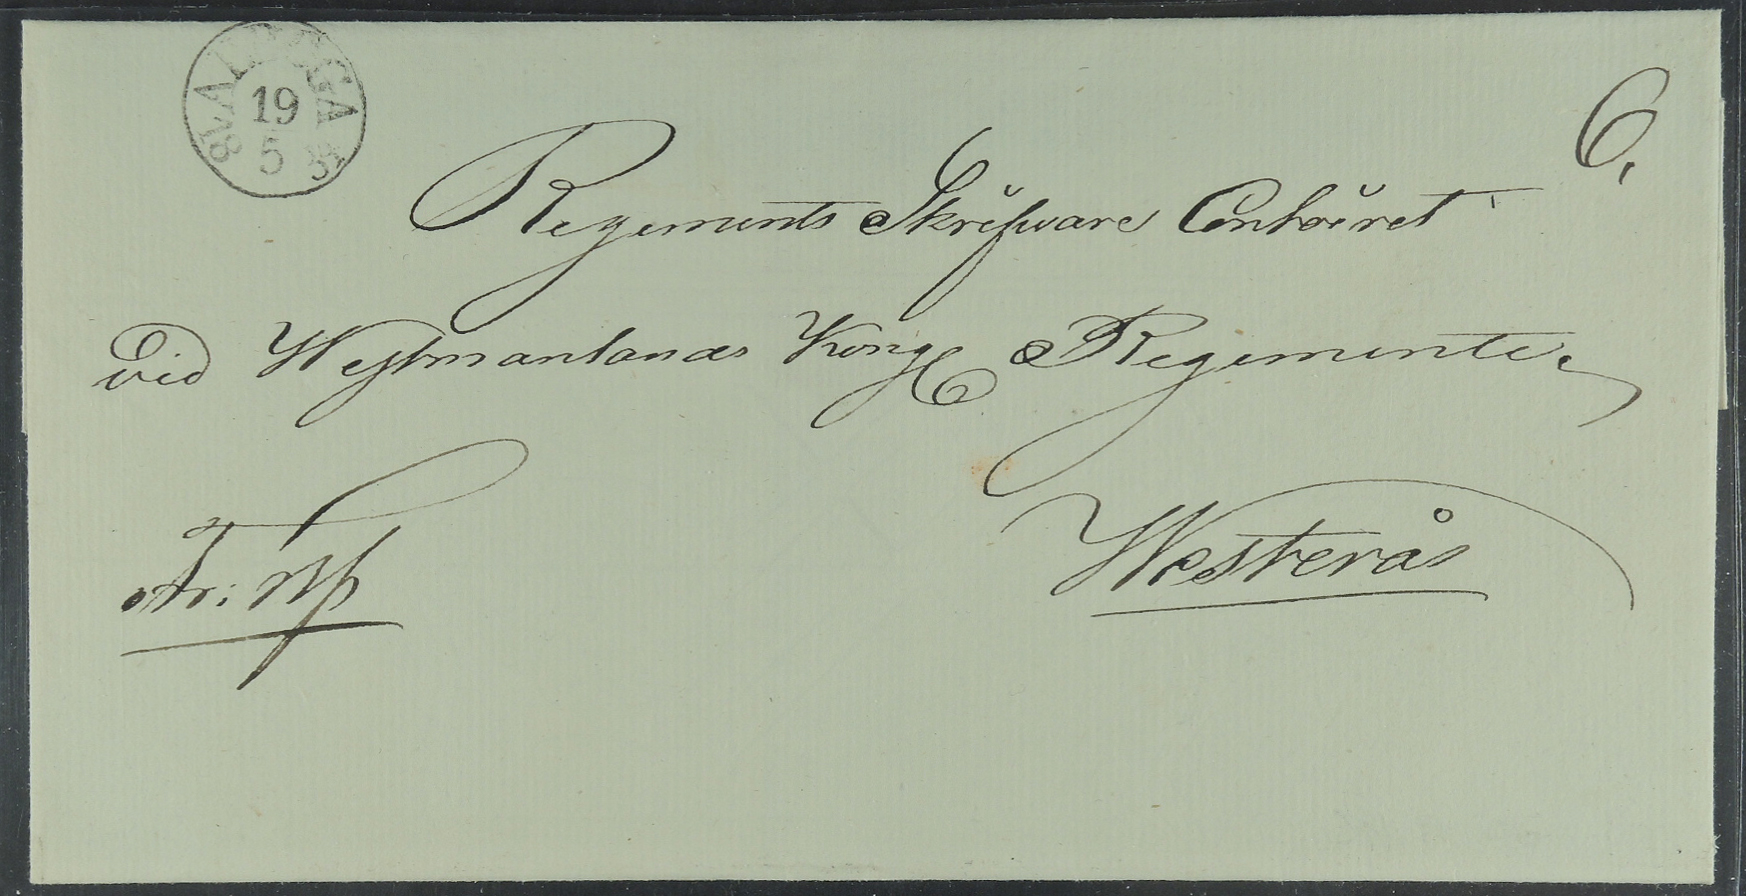 19
5
6.
Regements Skrifware Contoiret
vid Westmanlands Kongl Regemente
Westerås
Fr: